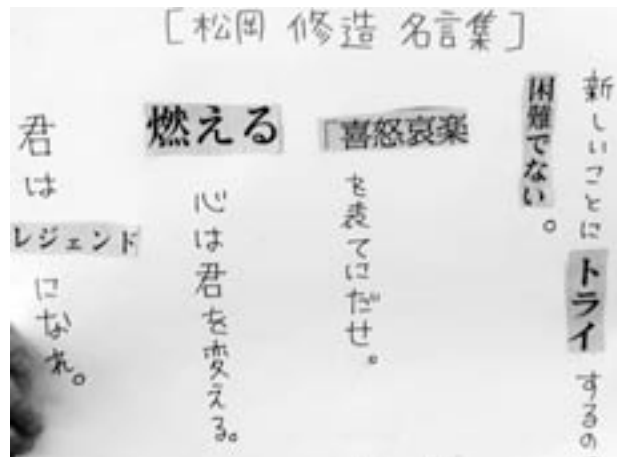 [松岡 修造 名言集]
新しいことにトライするの
困難でない。
「喜怒哀楽
を表てにだせ。
燃える
心は君を変える。
君は
レジェンド
になれ。